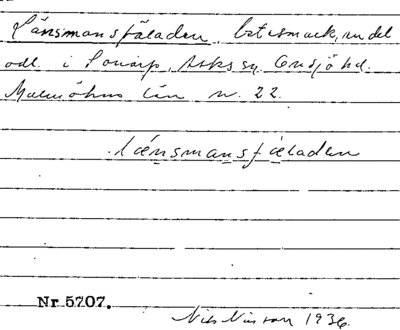 Länsmansfäladen, betesmark, en del
odl. i Sonarp, Asks sn, Onsjö hd.
Malmöhus län nr. 22.
länsmansfäladen
Nr 5707.
Nils Nilsson 1936.